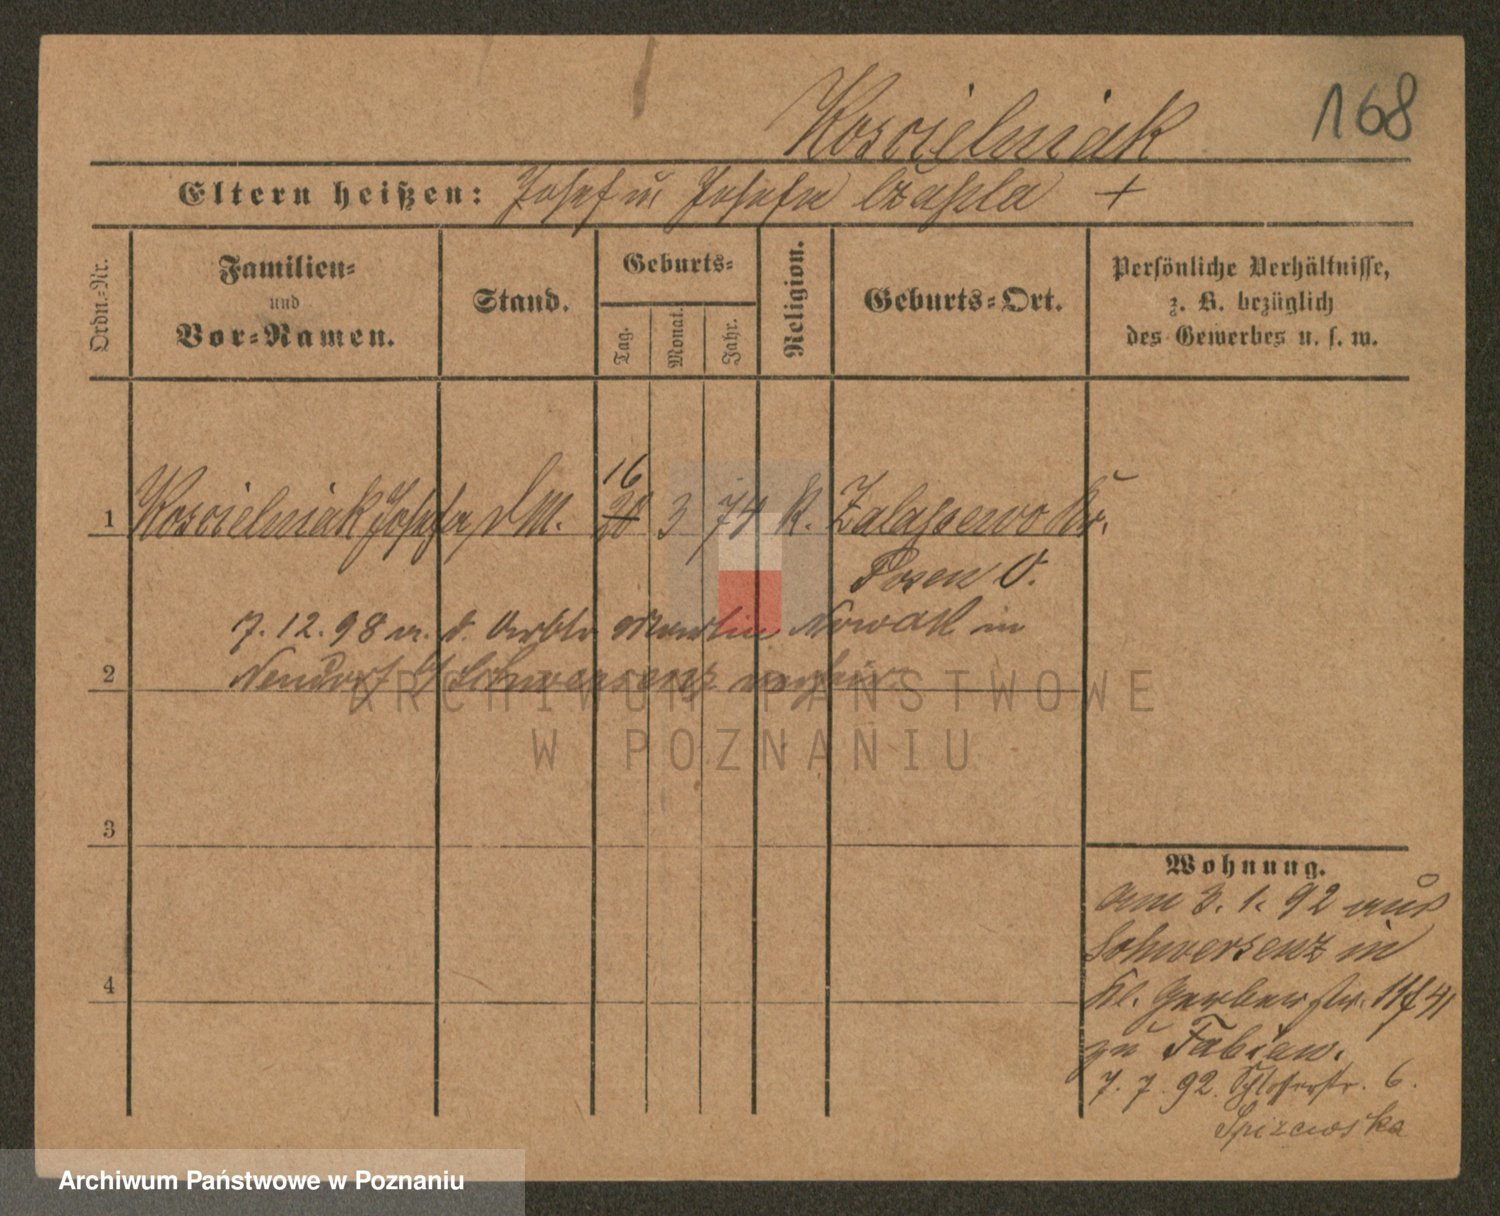 168
Koscielniak
Eltern heißen: Josef u. Josefa Czapla +
Ordn.-Nr.
Familien-
und
Vor-Namen.
Stand.
Geburts-
Tag.
Monat.
Jahr.
Religion.
Geburts-Ort.
Persönliche Verhältnisse,
z. B. bezüglich
des Gewerbes u. s. w.
16
1 Koscielniak Josefa, DM. 20 3 74 k. Zalassewo Kr.
Posen O.
7.12.98 m. d. Arbtr Martin Nowak in
2 Neudorf b/ Schwersenz verheir.
ARCHIWUM PAŃSTWOWE
W POZNANIU
3
4
Wohnung.
am 3.1.92 aus
Schwersenz in
Kl. Gerberstr.
zu Fabian.
7.7.92. Schloßerstr. 6.
Spizewska
Archiwum Państwowe w Poznaniu